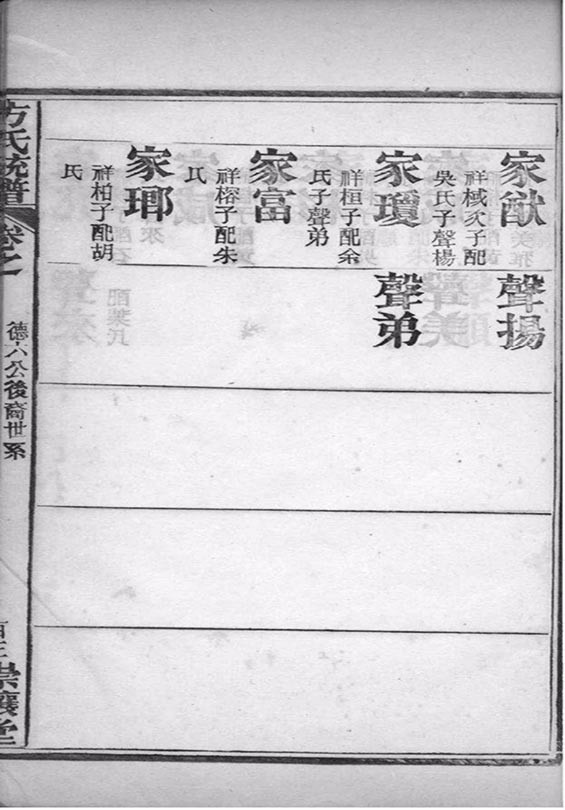 家猷
祥棫次子配
吳氏子聲楊
聲揚
家瓊
祥桓子配余
氏子聲弟
聲弟
家富
祥榕子配朱
氏
家瑯
祥柏子配胡
氏
方氏統譜
卷之
德六公後裔世系